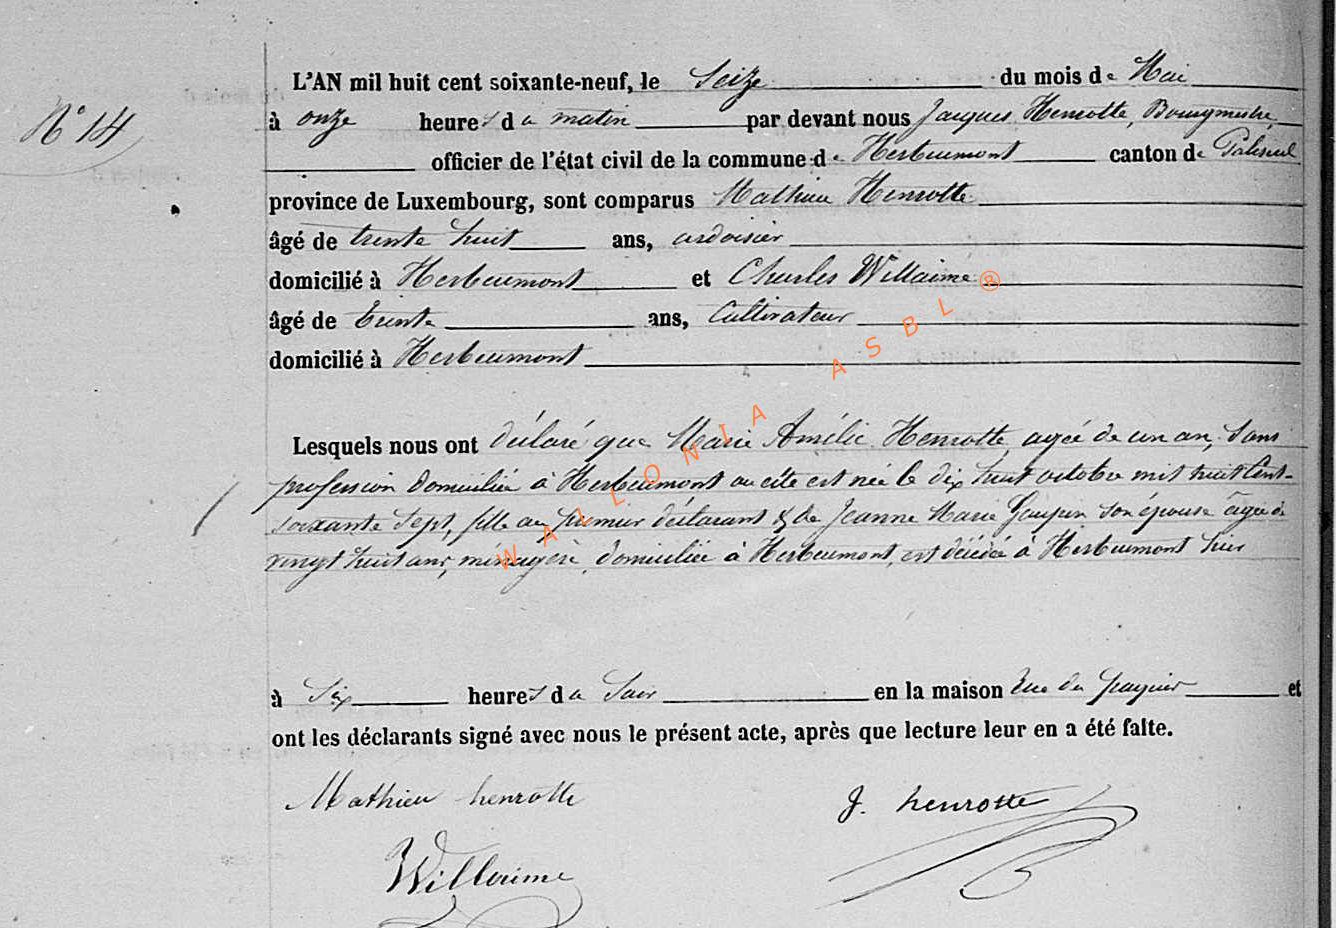 N° 14
L'AN mil huit cent soixante-neuf, le Seize du mois de Mai
à onze heures du matin par devant nous Jacques Henrotte, Bourgmestre,
officier de l'état civil de la commune de Herbeumont canton de Paliseul
province de Luxembourg, sont comparus Mathieu Henrotte
âgé de trente huit ans, ardoisier
domicilié à Herbeumont et Charles Willaime
âgé de trente ans, Cultivateur
domicilié à Herbeumont
Lesquels nous ont déclaré que Marie Amélie Henrotte, agée de un an, Sans
profession domiciliée à Herbeumont où elle est née le dix huit octobre mil huit Cent-
soixante Sept, fille du premier déclarant & de Jeanne Marie son épouse âgée de
vingt huit ans, ménagère, domiciliée à Herbeumont, est décédée à Herbeumont hier
à Six heures du Soir en la maison Rue du et
ont les déclarants signé avec nous le présent acte, après que lecture leur en a été faite.
Mathieu henrotte J. henrotte
Willaime
WALLONIA ASBL ®